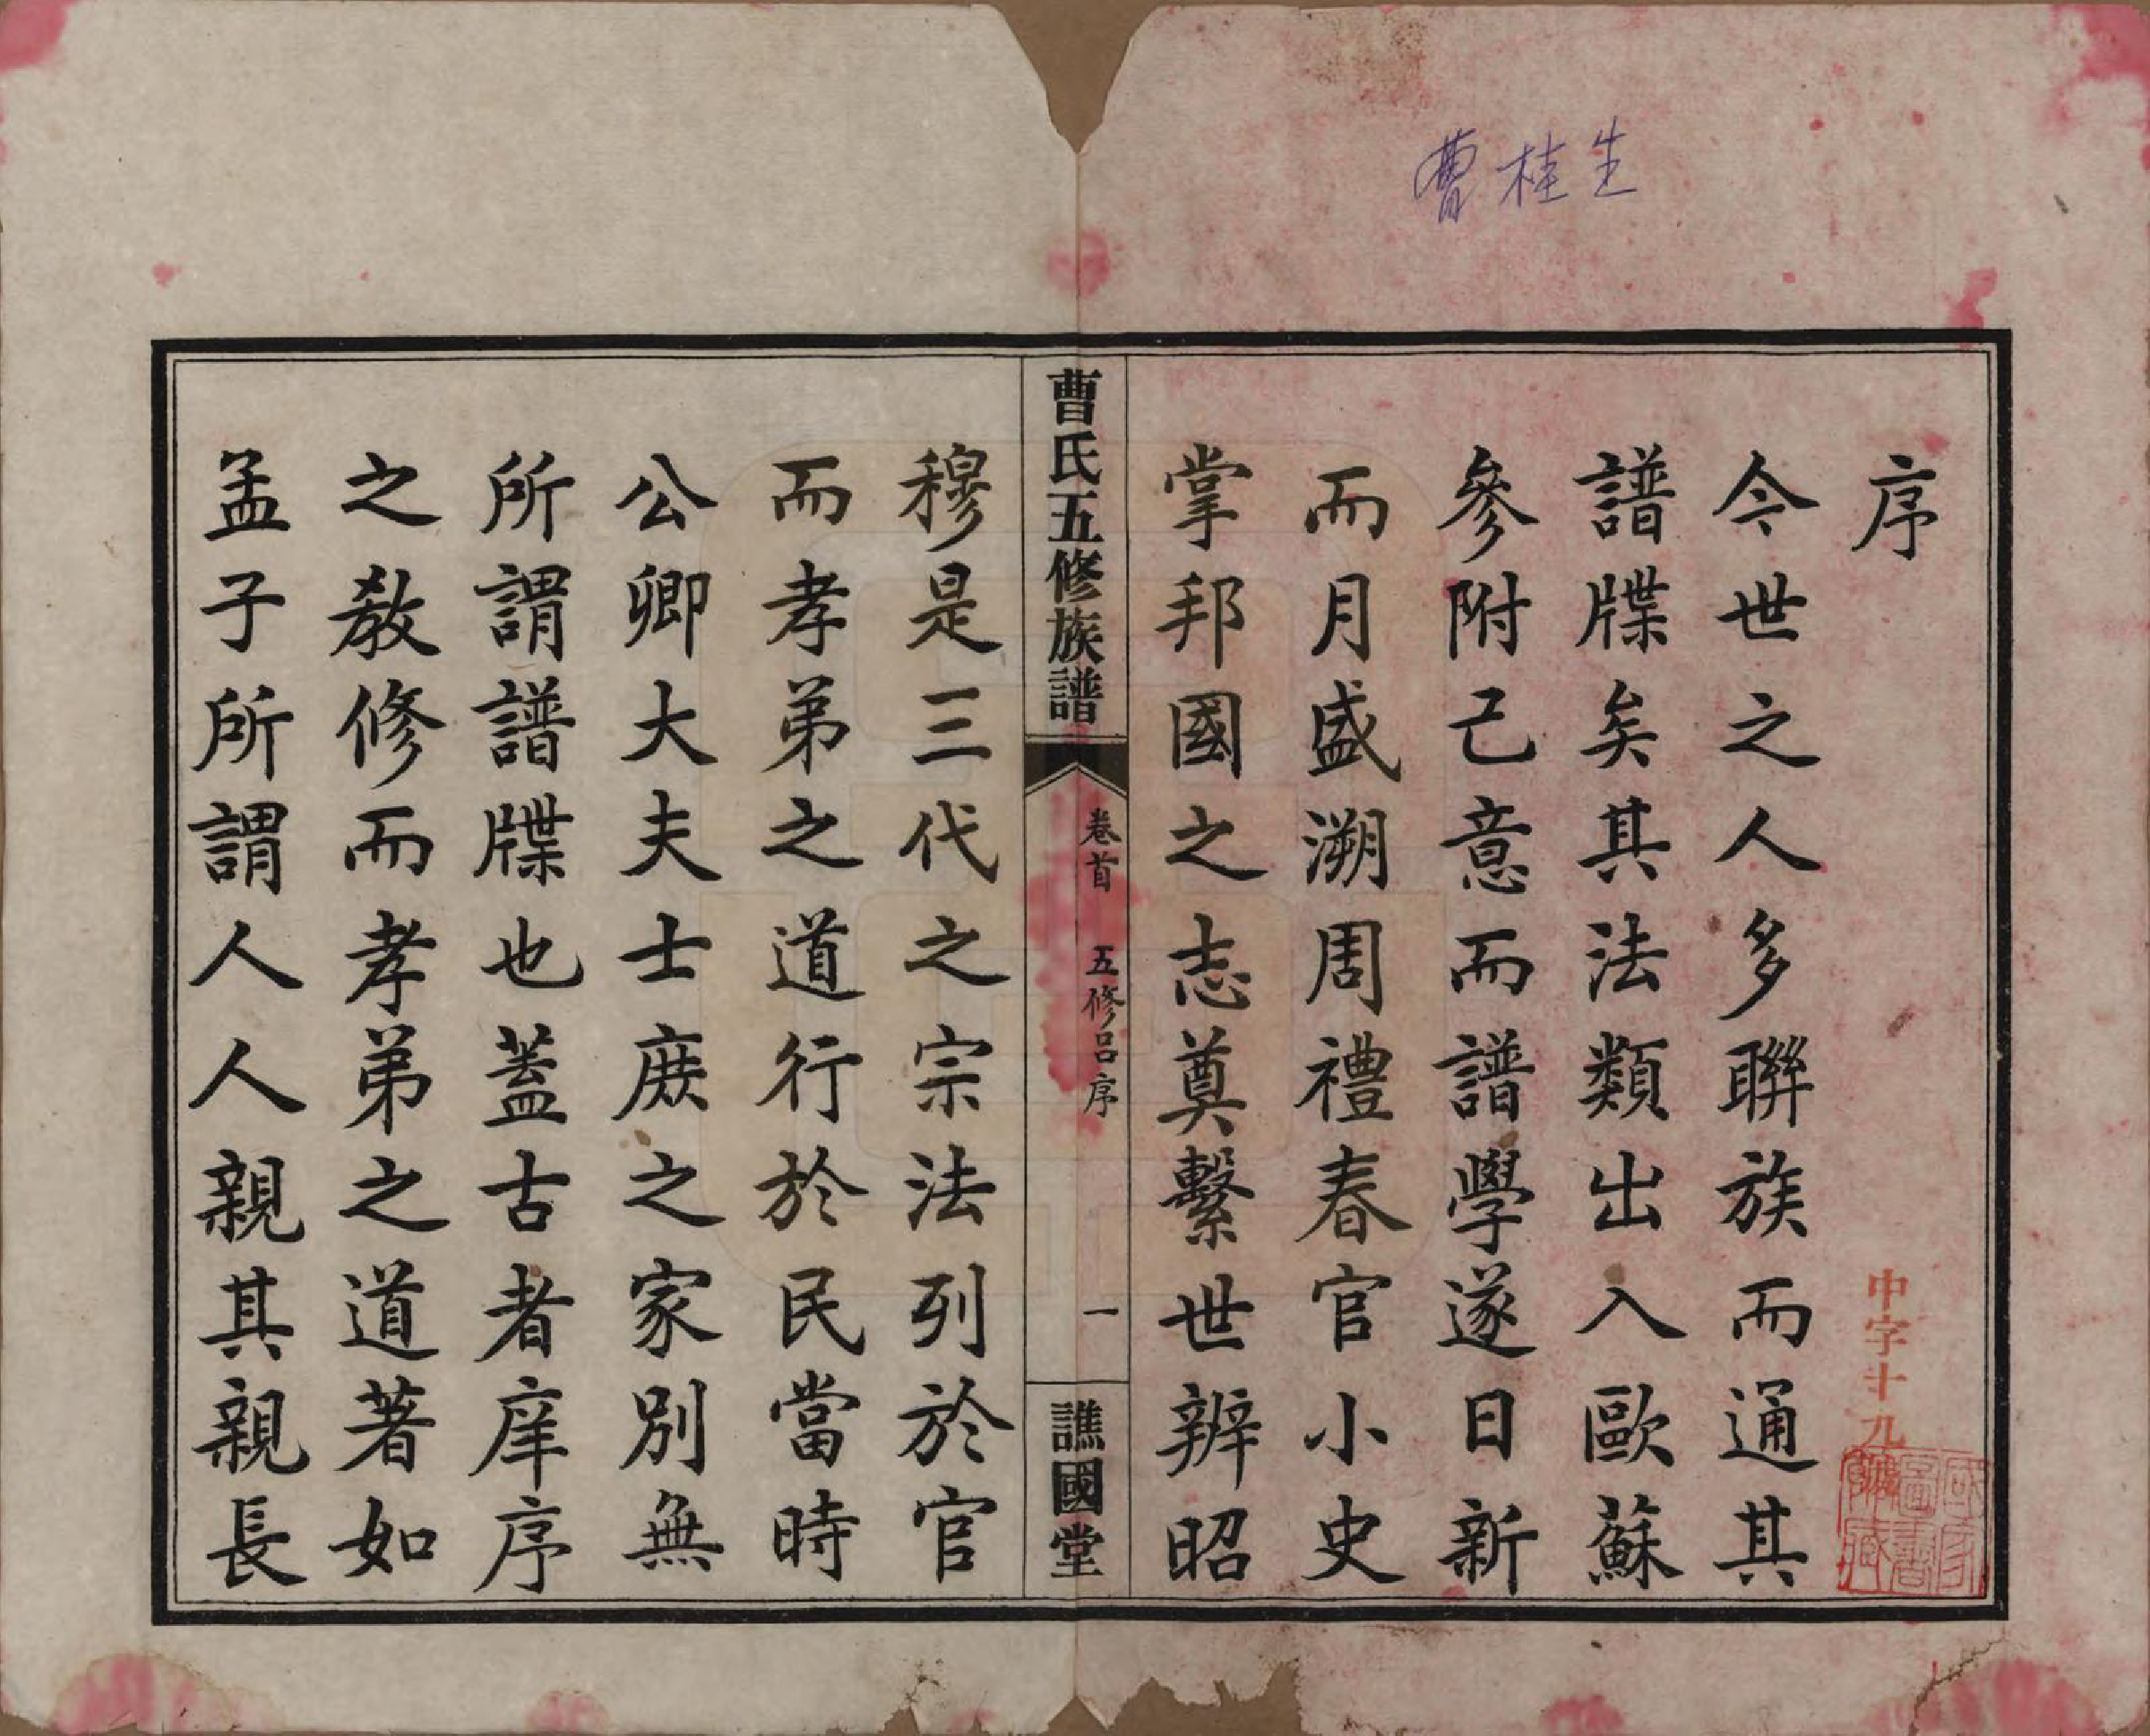 曹桂生
序
今世之人多聯族而通其
譜牒矣其法類出入歐蘇
參附己意而譜學遂日新
而月盛溯周禮春官小史
掌邦國之志奠繫世辨昭
曹氏五修族譜
卷首 五修呂序
一
譙國堂
穆是三代之宗法列於官
而孝弟之道行於民當時
公卿大夫士庶之家別無
所謂譜牒也蓋古者庠序
之教修而孝弟之道著如
孟子所謂人人親其親長
中字十九
國家圖書館藏